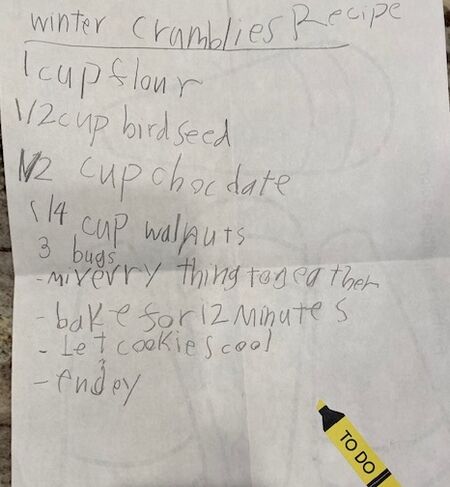 winter Crumblies Recipe
1 cup flour
1/2 cup birdseed
1/2 cup choc date
1/4 cup walnuts
3 bugs
- mix everry thing togeather
- bake for 12 minutes
- Let cookies cool
- endey
TO DO